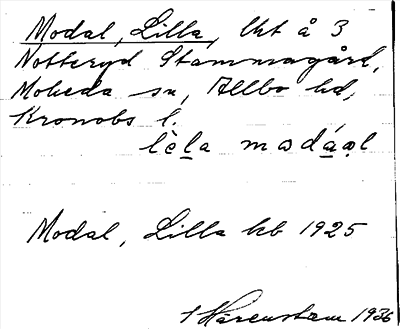 Modal, Lilla, lht å 3
Notteryd Stommagård,
Moheda sn, Allbo hd,
Kronobs l.
lèla modáol
Modal, Lilla kb 1925
Harenstam 1936